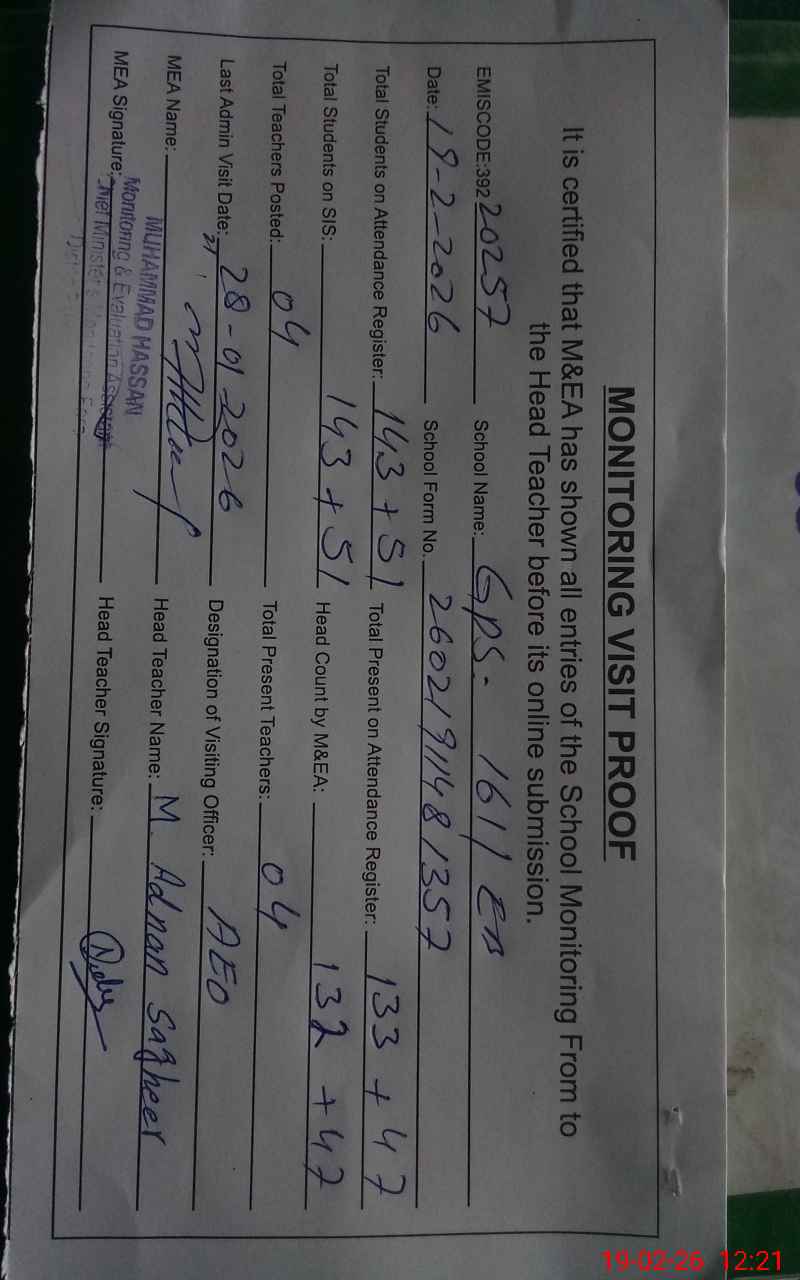 MONITORING VISIT PROOF
It is certified that M&EA has shown all entries of the School Monitoring From to
the Head Teacher before its online submission.
EMISCODE:392 20257 School Name: GPS- 161/EB
Date: 19-2-2026 School Form No. 26021911481357
Total Students on Attendance Register: 143 + 51 Total Present on Attendance Register: 133 + 47
Total Students on SIS: 143 + 51 Head Count by M&EA: 132 + 47
Total Teachers Posted: 04 Total Present Teachers: 04
Last Admin Visit Date: 28-01 2026 Designation of Visiting Officer: AEO
MEA Name: Head Teacher Name: M. Adnan Sagheer
MUHAMMAD HASSAN
MEA Signature: Head Teacher Signature:
Monitoring & Evaluation Assistant
Chief Minister's Monitoring Force
19-02-26 12:21